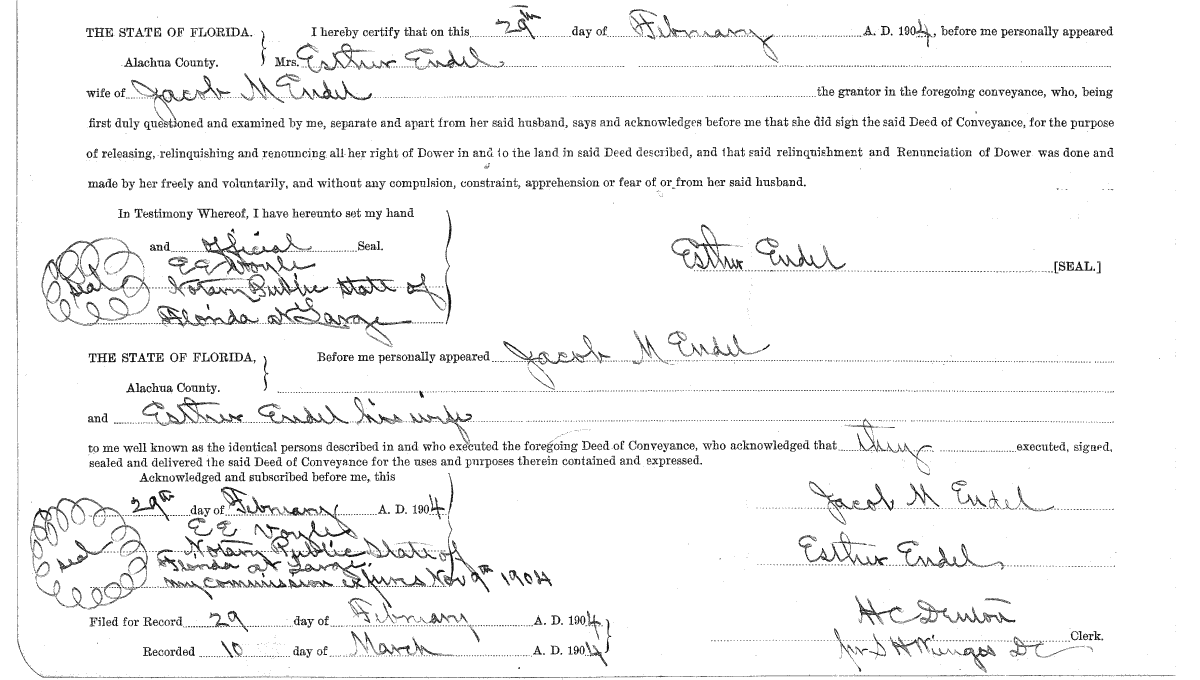 THE STATE OF FLORIDA. I hereby certify that on this 29th day of February A. D. 1904, before me personally appeared
Alachua County. Mrs. Esther Endel
wife of Jacob M Endel the grantor in the foregoing conveyance, who, being
first duly questioned and examined by me, separate and apart from her said husband, says and acknowledges before me that she did sign the said Deed of Conveyance, for the purpose
of releasing, relinquishing and renouncing all her right of Dower in and to the land in said Deed described, and that said relinquishment and Renunciation of Dower was done and
made by her freely and voluntarily, and without any compulsion, constraint, apprehension or fear of or from her said husband.
In Testimony Whereof, I have hereunto set my hand
and official Seal.
Esther Endel [SEAL.]
E E Voyle
seal Notary Public State of
Florida at Large
THE STATE OF FLORIDA, Before me personally appeared Jacob M Endel
Alachua County.
and Esther Endel his wife
to me well known as the identical persons described in and who executed the foregoing Deed of Conveyance, who acknowledged that they executed, signed,
sealed and delivered the said Deed of Conveyance for the uses and purposes therein contained and expressed.
Acknowledged and subscribed before me, this
29th day of February A. D. 1904 Jacob M Endel
E E Voyle
seal Notary Public State of Esther Endel
Florida at Large
my commission expires Nov 9th 1904
Filed for Record 29 day of February A. D. 1904 H C Denton
Recorded 10 day of March A. D. 1904 Clerk.
S H Wienges DC